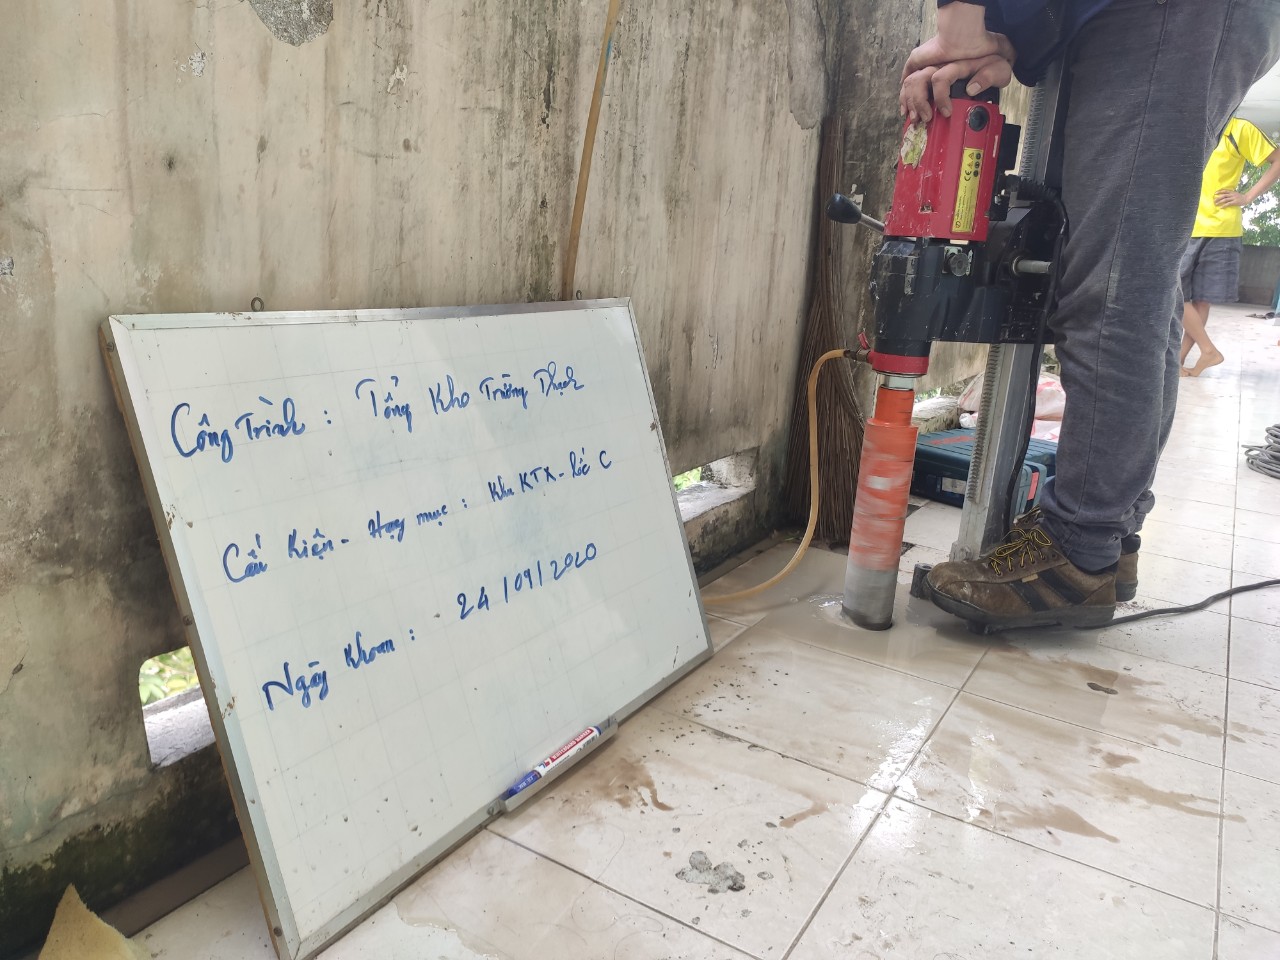 Công Trình : Tổng Kho Trường Thạch
Cấu Kiện - Hạng mục : Khu KTX - lốc C
Ngày Khoan : 24/09/2020
CE